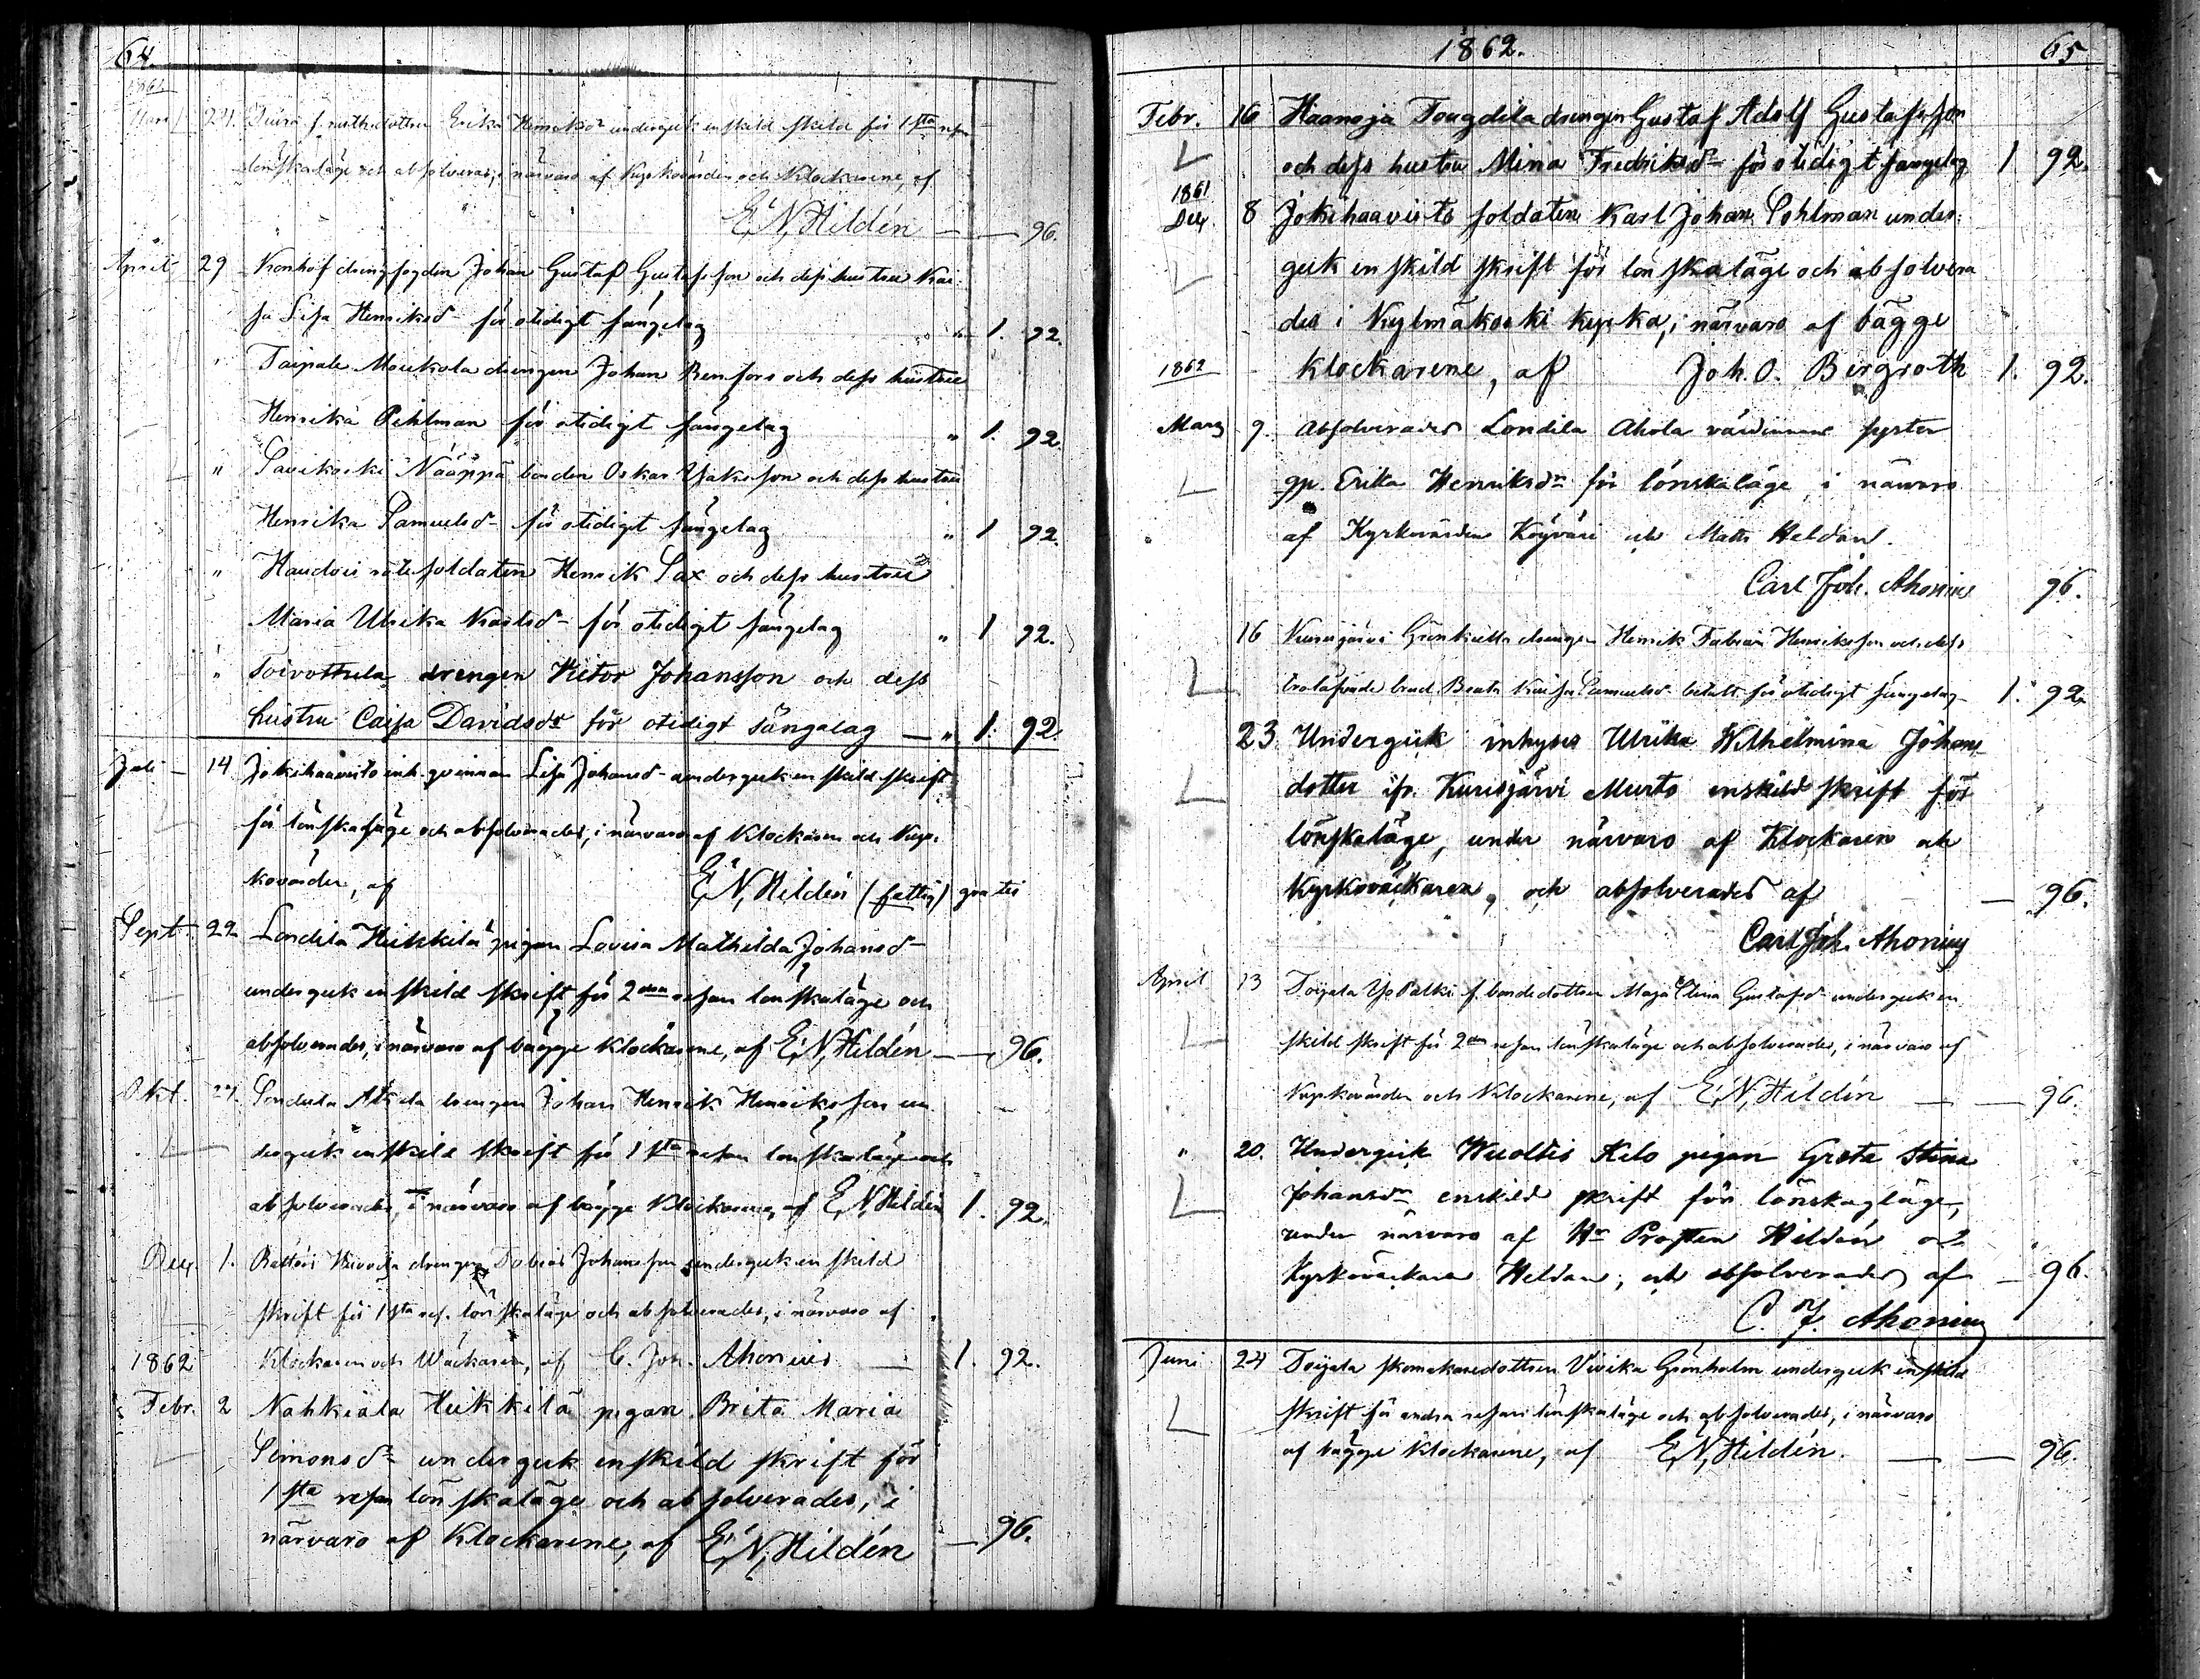 64.
1861
Mars 24. f. rusth. dottern Erika Henriksdr undergick enskild skrift för 1sta resan
lönskaläge och absolverad, i närvaro af Kyrkovärden och Klockarene, af
E. N. Hildén — — 96.
April 29 Kronhof drengfogden Johan Gustaf Gustafsson och dess hustru Kai-
sa Lisa Henriksd- för otidigt sängelag " 1. 92.
" Taipale Moukola drengen Johan Renfors och dess hustru
Henrika Pihlman för otidigt sängelag " 1. 92.
" Savikoski Nääppä bonden Oskar Isaksson och dess hustru
Henrika Samuelsd- för otidigt sängelag " 1 92.
" rotesoldaten Henrik Sax och dess hustru
Maria Ulrika Karlsd- för otidigt sängelag " 1 92.
" Toivottula drengen Victor Johansson och dess
hustru Caisa Davidsdr för otidigt sängalag — " 1. 92.
Juli — 14 Jokihaavisto inh. qvinnan Lisa Johansd- undergick enskild skrift
för lönskaläge och absolverades, i närvaro af Klockaren och Kyr-
kovärden, af E. N. Hildén (fattig) gratis
Sept. 22 Londila Heikkilä pigan Lovisa Mathilda Johansd-
undergick enskild skrift för 2dra resan lönskaläge och
absolverades, i närvaro af bägge Klockarene, af E. N. Hildén — — 96.
Okt. 27. drengen Johan Henrik Henriksson un-
dergick enskild skrift för 1sta resan lönskaläge och
absolverades, i närvaro af bägge Klockarene, af E. N. Hildén 1. 92.
Dec. 1. drengen Tobias Johansson undergick enskild
skrift för 1sta res. lönskaläge och absolverades, i närvaro af
1862 Klockaren och Wäckaren, af C. Joh. Ahonius — 1. 92.
Febr. 2 Nahkiala Heikkilä pigan Brita Maria
Simonsdr undergick enskild skrift för
1sta resan lönskaläge och absolverades, i
närvaro af Klockarene, af E. N. Hildén — 96.
1862. 65
Febr. 16 Haanoja drengen Gustaf Adolf Gustafsson
och dess hustru Mina Fredriksdr för otidigt sängelag 1 92.
1861
Dec. 8 Jokihaavisto soldaten Karl Johan Sohlman under-
gick enskild skrift för lönskaläge och absolvera
des i Kylmäkoski kyrka, i närvaro af bägge
1862 Klockarene, af Joh. O. Bergroth 1. 92.
Mars 9. Absolverades Londila Ahola värdinnans syster
qp. Erika Henriksdr för lönskaläge i närvaro
af Kyrkovärden Köyväri och Matts Heldán.
Carl Joh. Ahonius 96.
16 Kurisjärvi drengen Henrik Fabian Henriksson och dess
trolofvade brud Beata Kaisa Samuelsd- betalt för otidigt sängelag 1. 92.
23. Undergick inhyses Ulrika Wilhelmina Johans-
dotter ifr. Kurisjärvi Murto enskild skrift för
lönskaläge, under närvaro af Klockaren och
Kyrkoväckaren, och absolverades af — 96.
Carl Joh. Ahonius
April 13 Toijala f. bondedottern Maja Stina Gustafsd- undergick en-
skild skrift för 2dra resan lönskaläge och absolverades, i närvaro af
Kyrkovärden och Klockarene, af E. N. Hildén — — 96.
" 20. Undergick Wuoltis Kilo pigan Greta Stina
Johansdr enskild skrift för lönskagläge,
under närvaro af Hr Prosten Hildén och
Kyrkoväckaren Heldan, och absolverades af — 96.
C. J. Ahonius
Juni 24 Toijala skomakaredottern Vivika Grönholm undergick enskild
skrift för andra resan lönskaläge och absolverades, i närvaro
af bägge klockarene, af E. N. Hildén. — — 96.